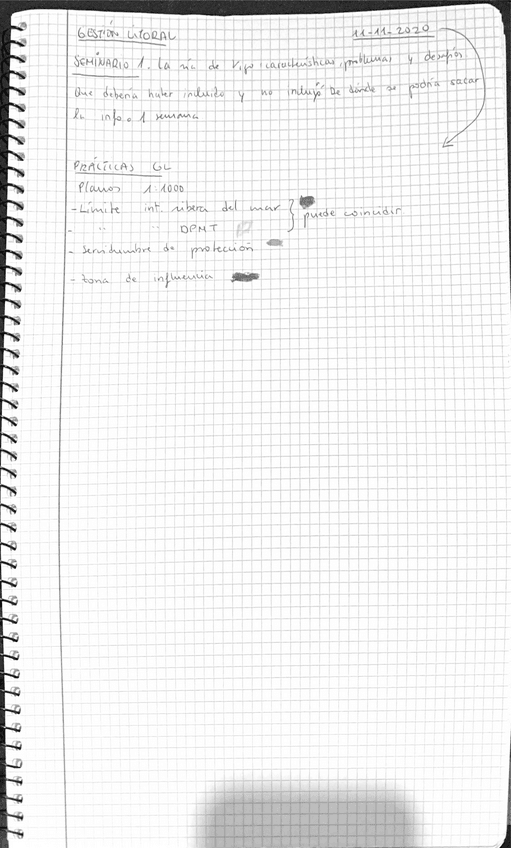 GESTIÓN LITORAL 11-11-2020
SEMINARIO 1. La ría de Vigo: características, problemas y desafíos
Que debería haber incluido y no incluyó De dónde se podría sacar
la info. 1 semana
PRÁCTICAS GL
Planos 1:1000
- Límite int. ribera del mar } puede coincidir
- " " DPMT
- Servidumbre de protección
- Zona de influencia